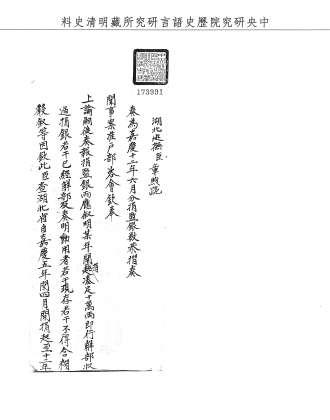 中央研究院歷史語言研究所藏明清史料
173991
湖北巡撫臣章煦跪
奏為嘉慶十三年六月分捐監銀數恭摺奏
聞事案准戶部咨會欽奉
上諭嗣後奏報捐監銀兩應敘明某年開起湊足十萬兩即行解部收
過捐銀若干已經解部及奏明動用者若干現存若干不得含糊
敘等因欽此臣查湖北省自嘉慶五年閏四月開捐起至十三年